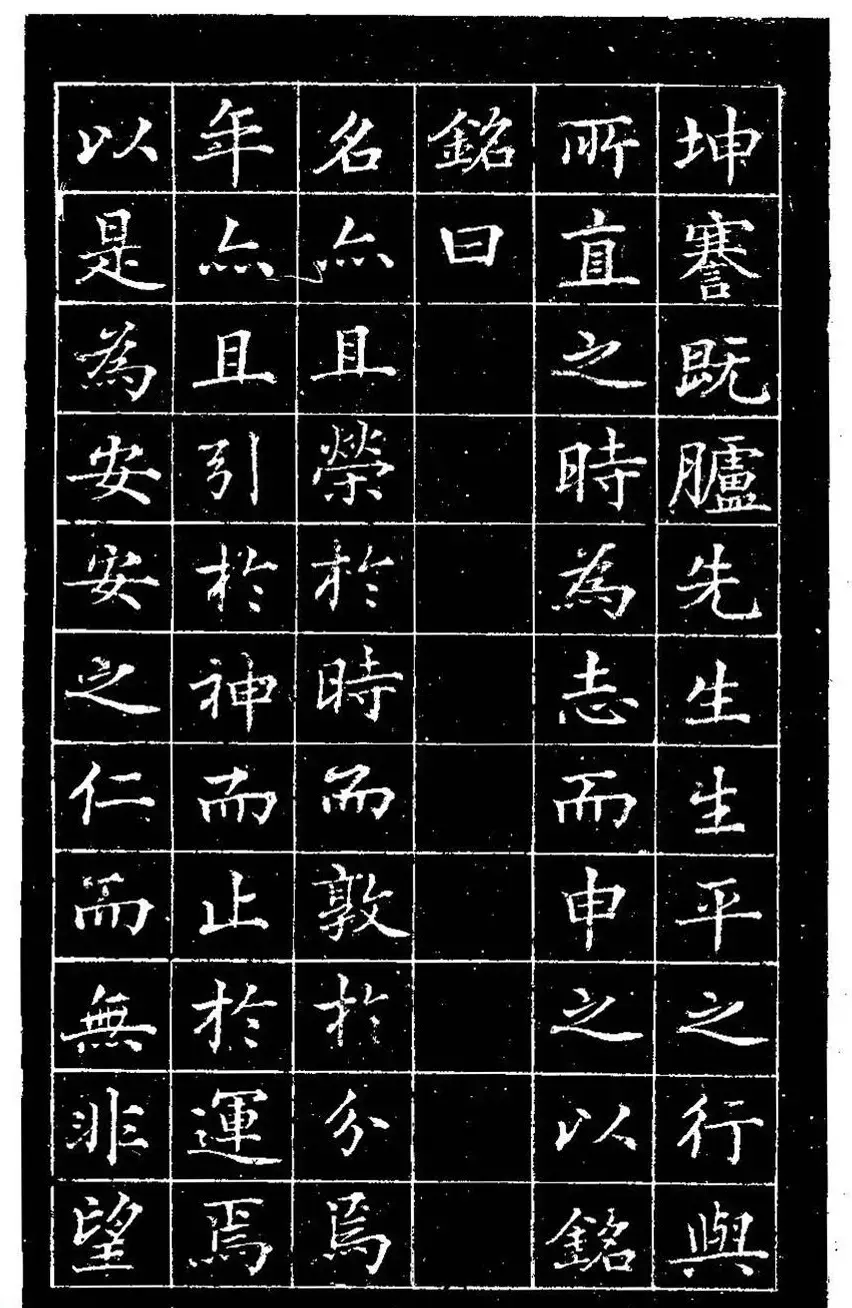 坤謇既臚先生生平之行與
所直之時為志而申之以銘
銘曰
名亦且榮於時而敦於分焉
年亦且引於神而止於運焉
以是為安安之仁而無非望